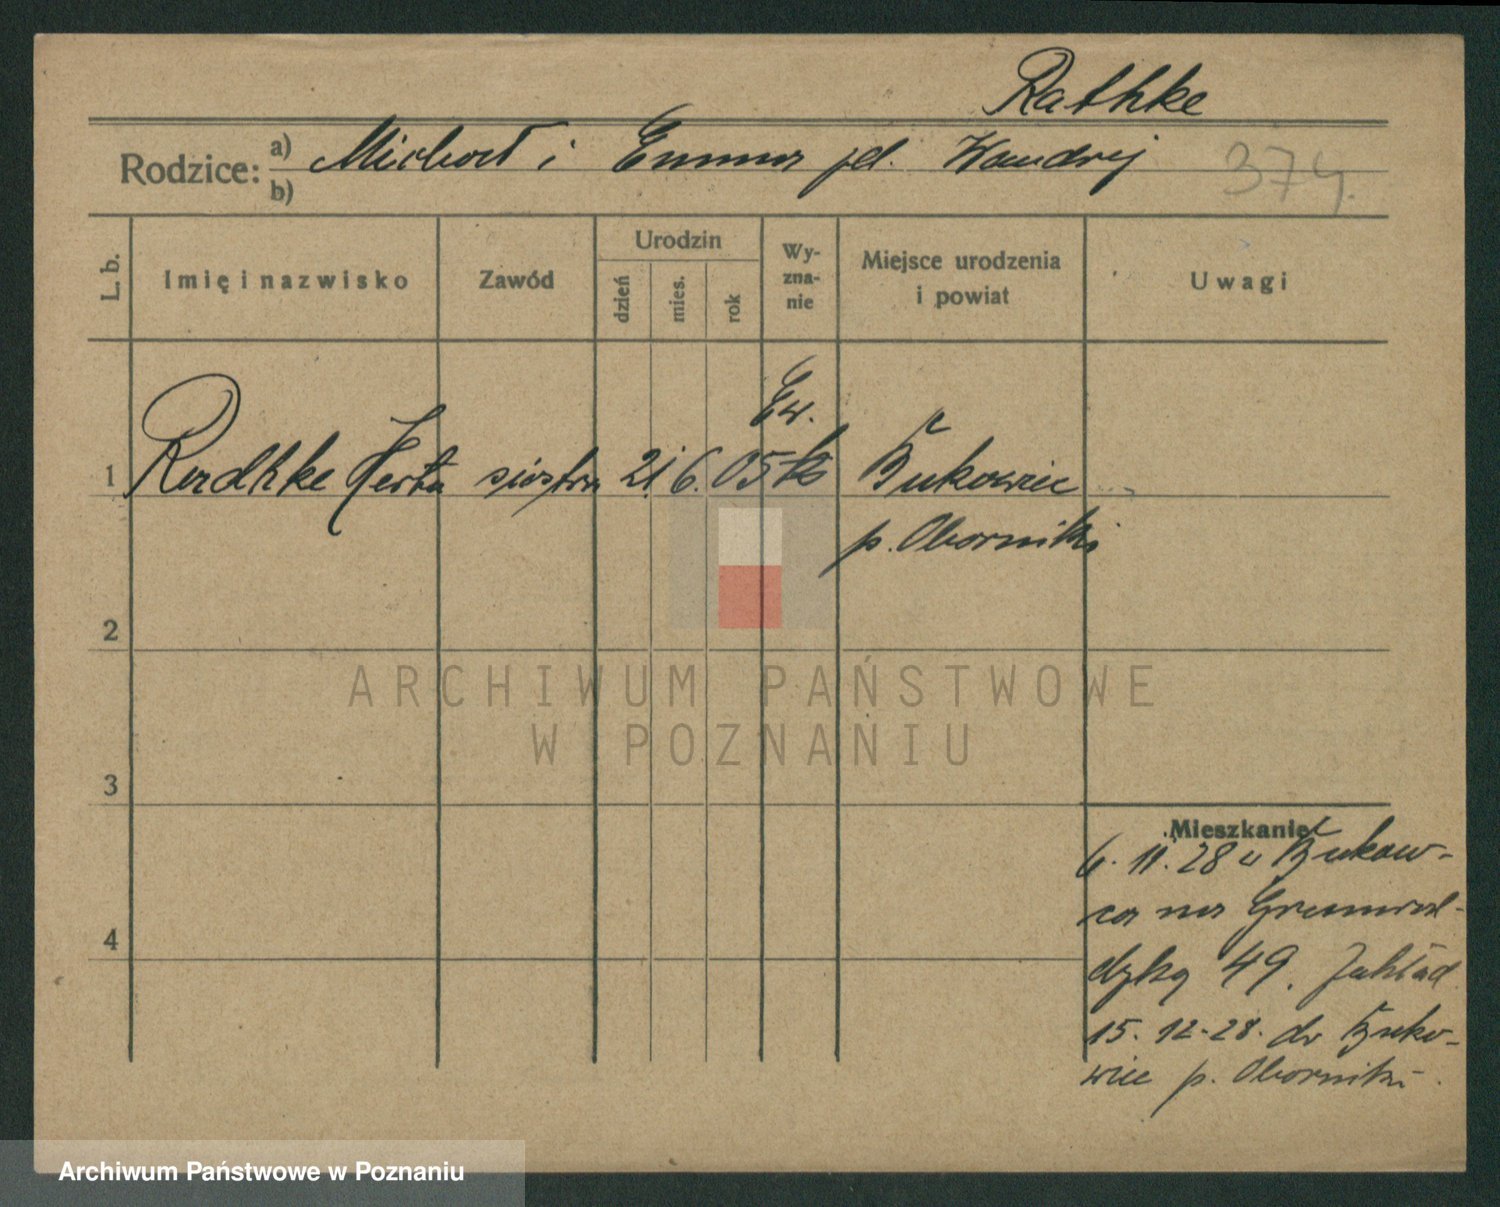 Rathke
Rodzice: a) Michał i Emma zd. Wandrej
b)
374.
L. b.
Imię i nazwisko
Zawód
Urodzin
dzień
mies.
rok
Wy-
zna-
nie
Miejsce urodzenia
i powiat
Uwagi
Ew.
1 Radhke Herta siostra 21. 6. 05 Bukowiec
p. Oborniki
2
3
4
Mieszkanie
6. 11. 28 z Bukow-
ca na Grunwal-
dzką 49. Zakład
15. 12. 28. do Buko-
wiec p. Oborniki.
ARCHIWUM PAŃSTWOWE
W POZNANIU
Archiwum Państwowe w Poznaniu